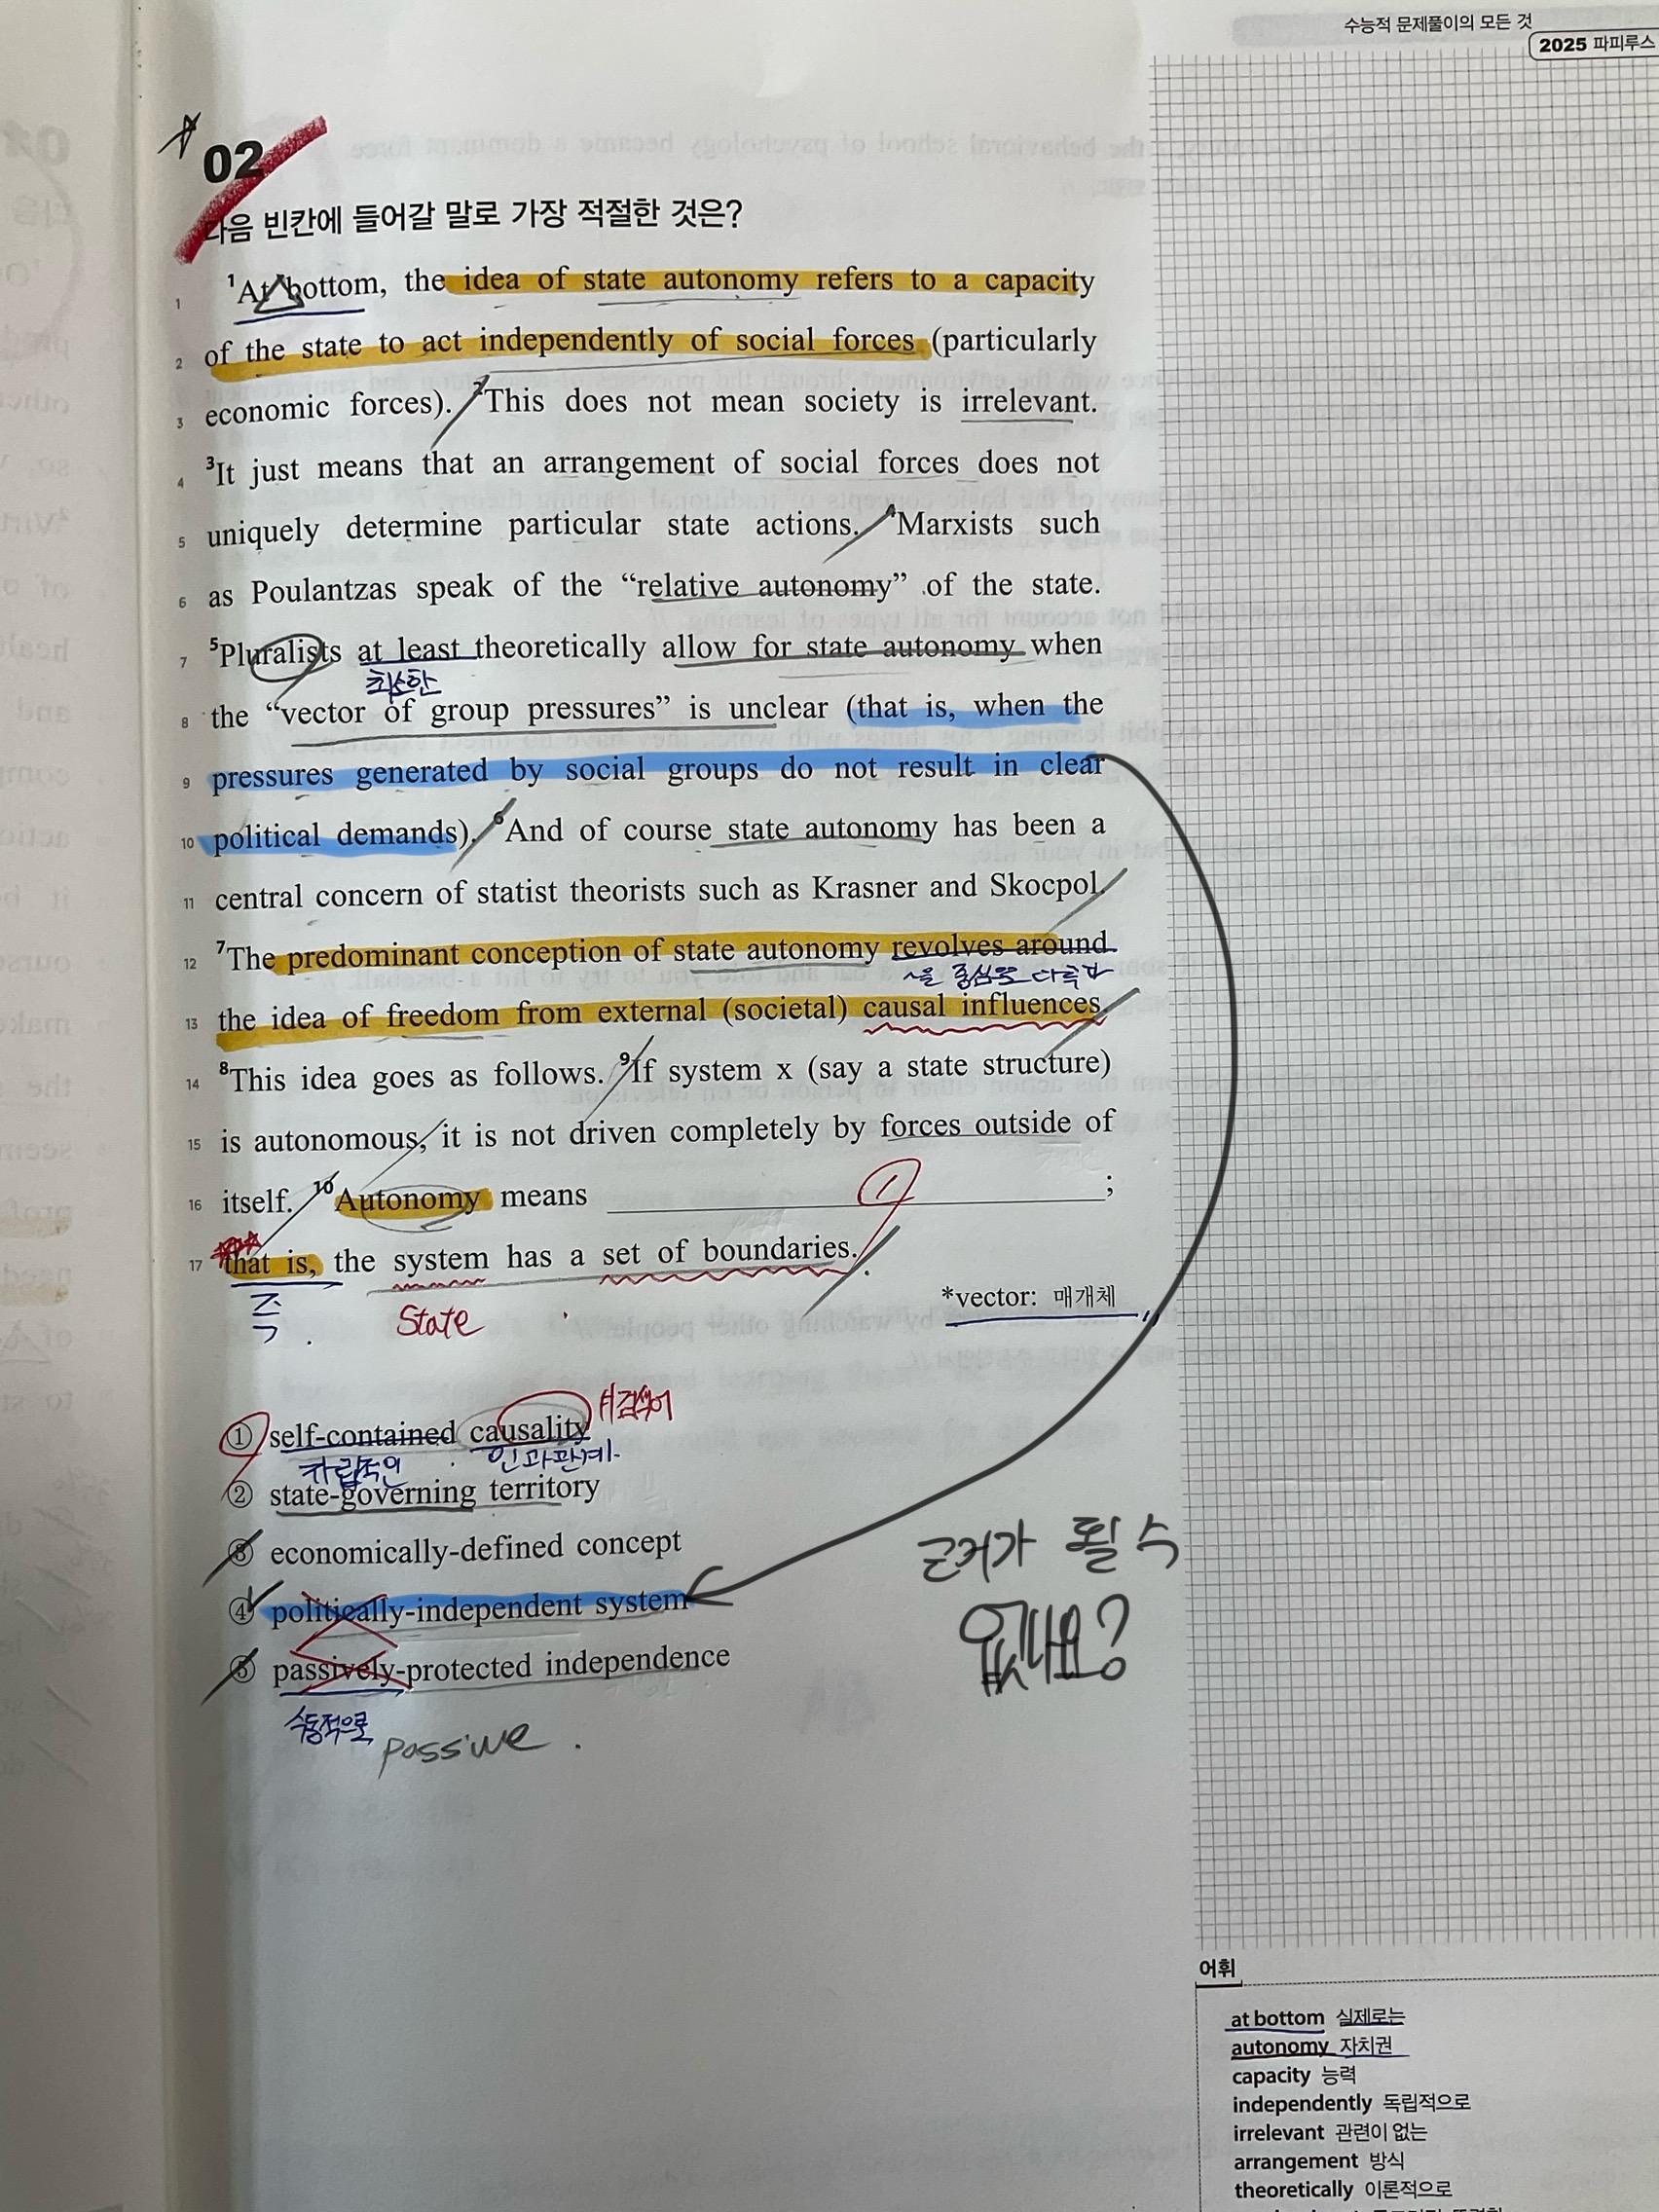 수능적 문제풀이의 모든 것
2025 파피루스
02
다음 빈칸에 들어갈 말로 가장 적절한 것은?
1 ¹At bottom, the idea of state autonomy refers to a capacity
2 of the state to act independently of social forces (particularly
3 economic forces). ²This does not mean society is irrelevant.
4 ³It just means that an arrangement of social forces does not
5 uniquely determine particular state actions. ⁴Marxists such
6 as Poulantzas speak of the “relative autonomy” of the state.
7 ⁵Pluralists at least theoretically allow for state autonomy when
최소한
8 the “vector of group pressures” is unclear (that is, when the
9 pressures generated by social groups do not result in clear
10 political demands). ⁶And of course state autonomy has been a
11 central concern of statist theorists such as Krasner and Skocpol.
12 ⁷The predominant conception of state autonomy revolves around
~을 중심으로 다루다
13 the idea of freedom from external (societal) causal influences.
14 ⁸This idea goes as follows. ⁹If system x (say a state structure)
15 is autonomous, it is not driven completely by forces outside of
16 itself. ¹⁰Autonomy means ① ;
17 that is, the system has a set of boundaries.
즉
State
*vector: 매개체
① self-contained causality
자립적인 인과관계
② state-governing territory
③ economically-defined concept
④ politically-independent system
⑤ passively-protected independence
수동적으로
passive
근거가 될 수
없나요?
어휘
at bottom 실제로는
autonomy 자치권
capacity 능력
independently 독립적으로
irrelevant 관련이 없는
arrangement 방식
theoretically 이론적으로